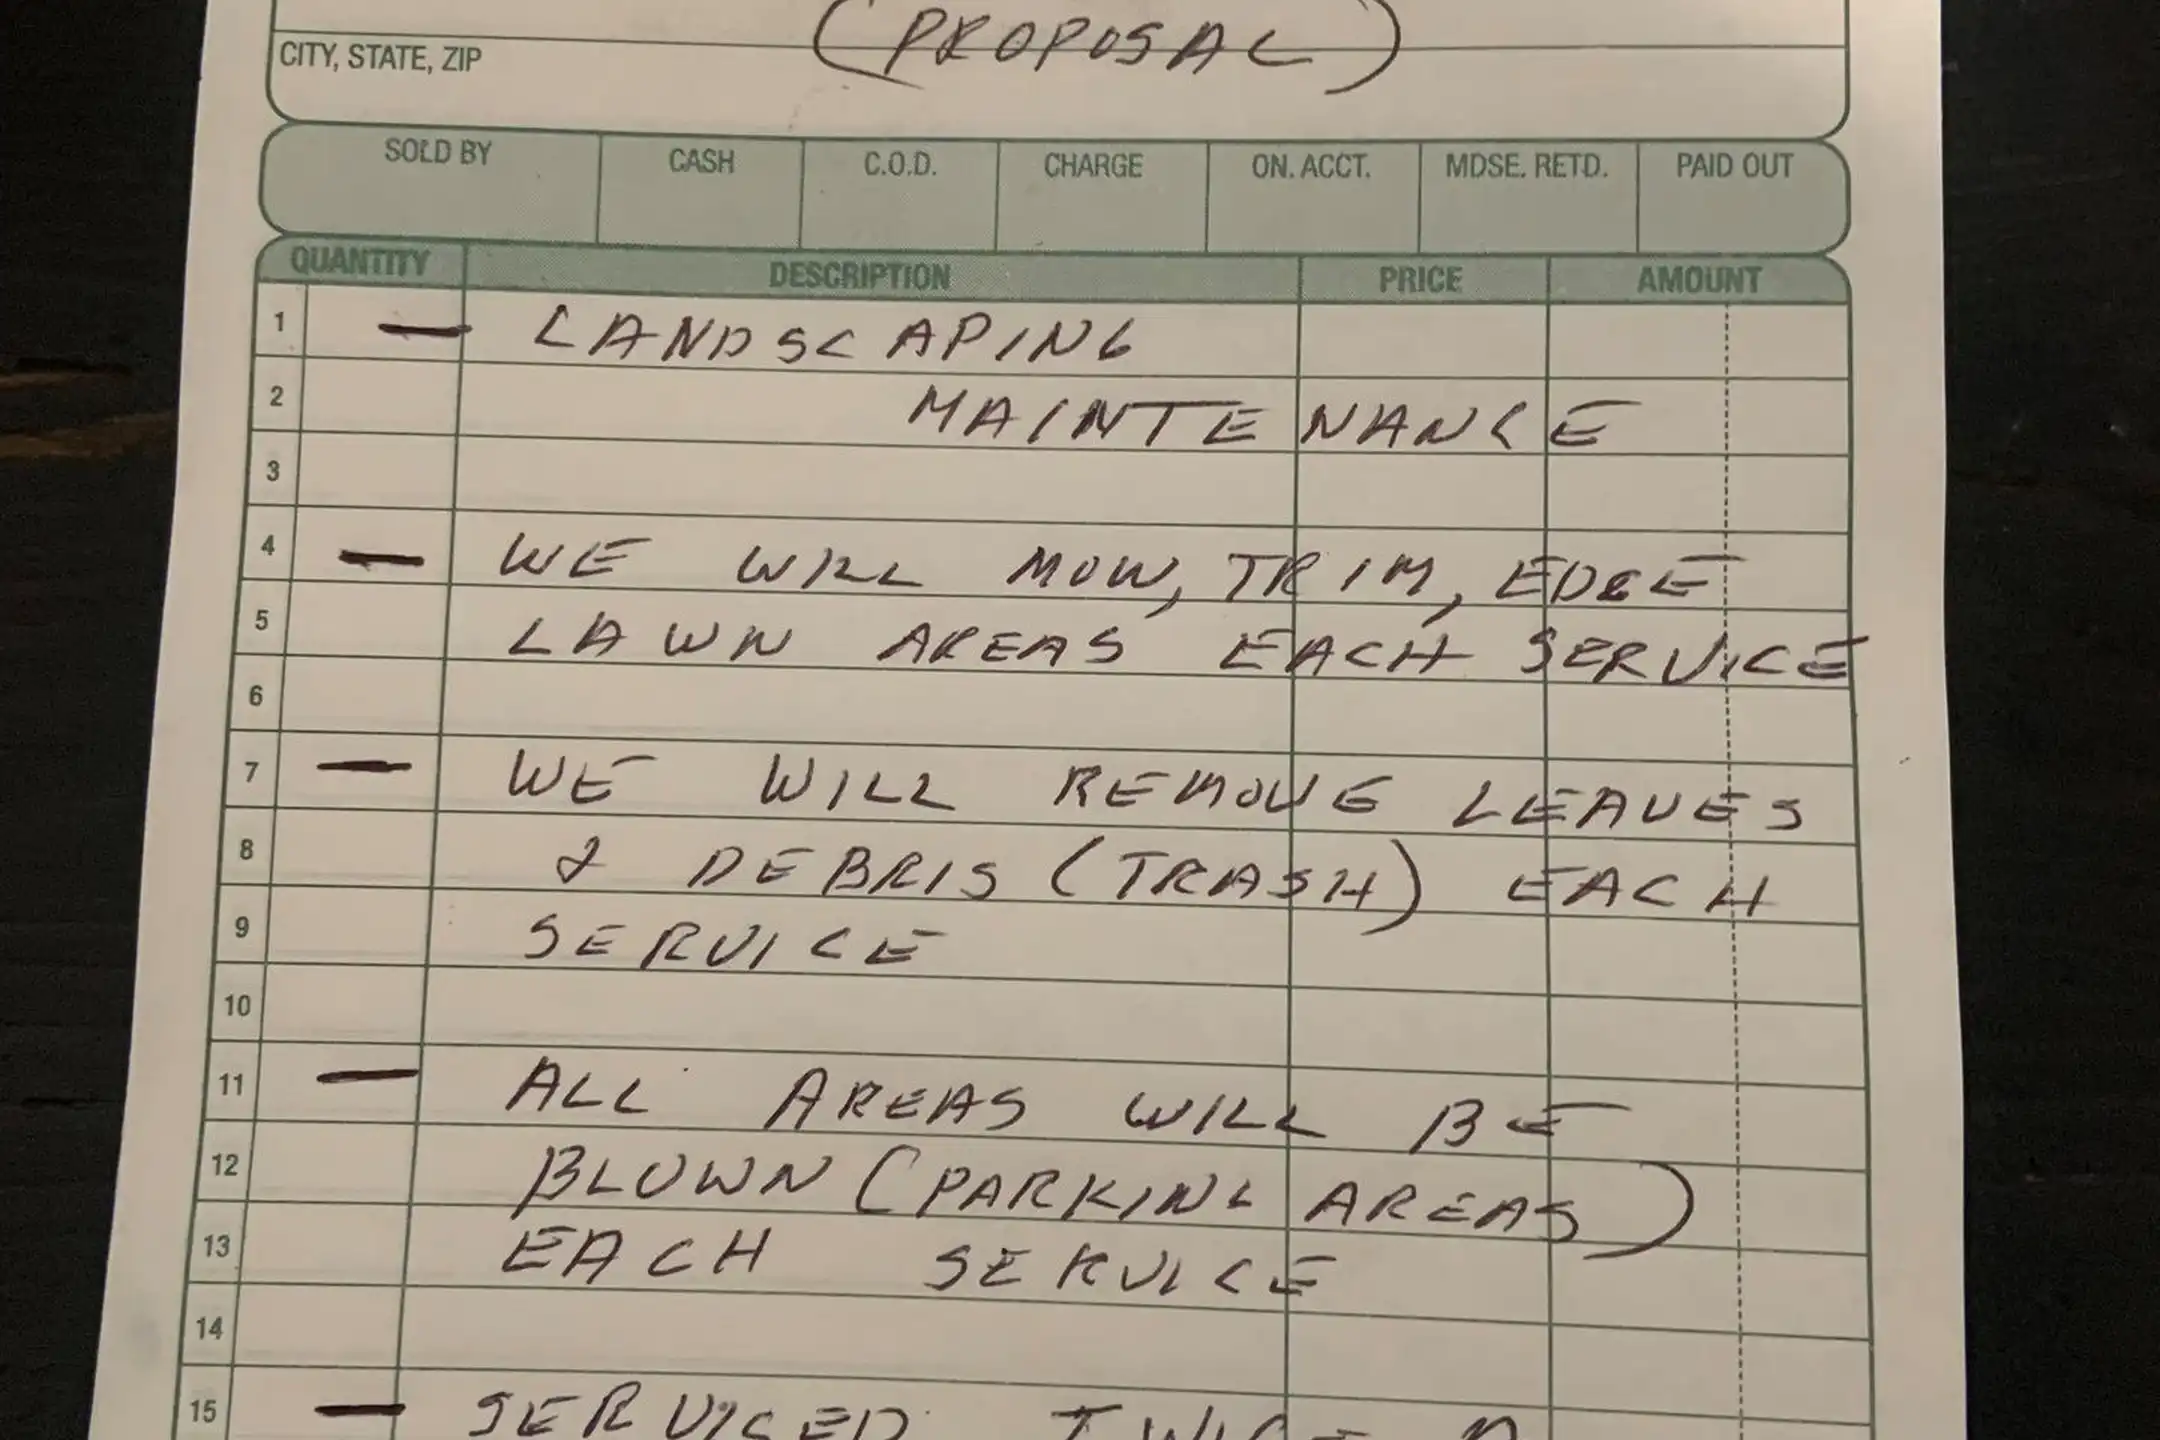 (PROPOSAL)
CITY, STATE, ZIP
SOLD BY CASH C.O.D. CHARGE ON. ACCT. MDSE. RETD. PAID OUT
QUANTITY DESCRIPTION PRICE AMOUNT
1 — LANDSCAPING
2 MAINTENANCE
3
4 — WE WILL MOW, TRIM, EDGE
5 LAWN AREAS EACH SERVICE
6
7 — WE WILL REMOVE LEAVES
8 & DEBRIS (TRASH) EACH
9 SERVICE
10
11 — ALL AREAS WILL BE
12 BLOWN (PARKING AREAS)
13 EACH SERVICE
14
15 — SERVICED TWICE A